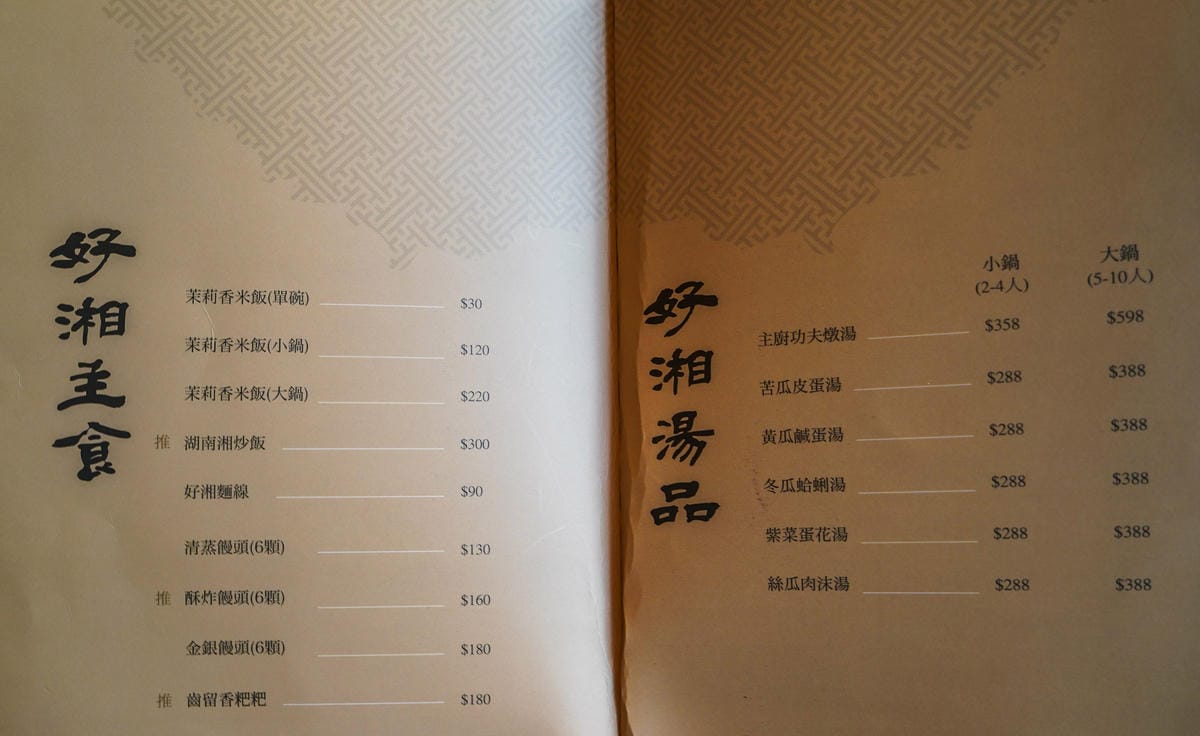 好湘主食
茉莉香米飯(單碗) $30
茉莉香米飯(小鍋) $120
茉莉香米飯(大鍋) $220
推 湖南湘炒飯 $300
好湘麵線 $90
清蒸饅頭(6顆) $130
推 酥炸饅頭(6顆) $160
金銀饅頭(6顆) $180
推 齒留香粑粑 $180
好湘湯品
小鍋 大鍋
(2-4人) (5-10人)
主廚功夫燉湯 $358 $598
苦瓜皮蛋湯 $288 $388
黃瓜鹹蛋湯 $288 $388
冬瓜蛤蜊湯 $288 $388
紫菜蛋花湯 $288 $388
絲瓜肉沫湯 $288 $388